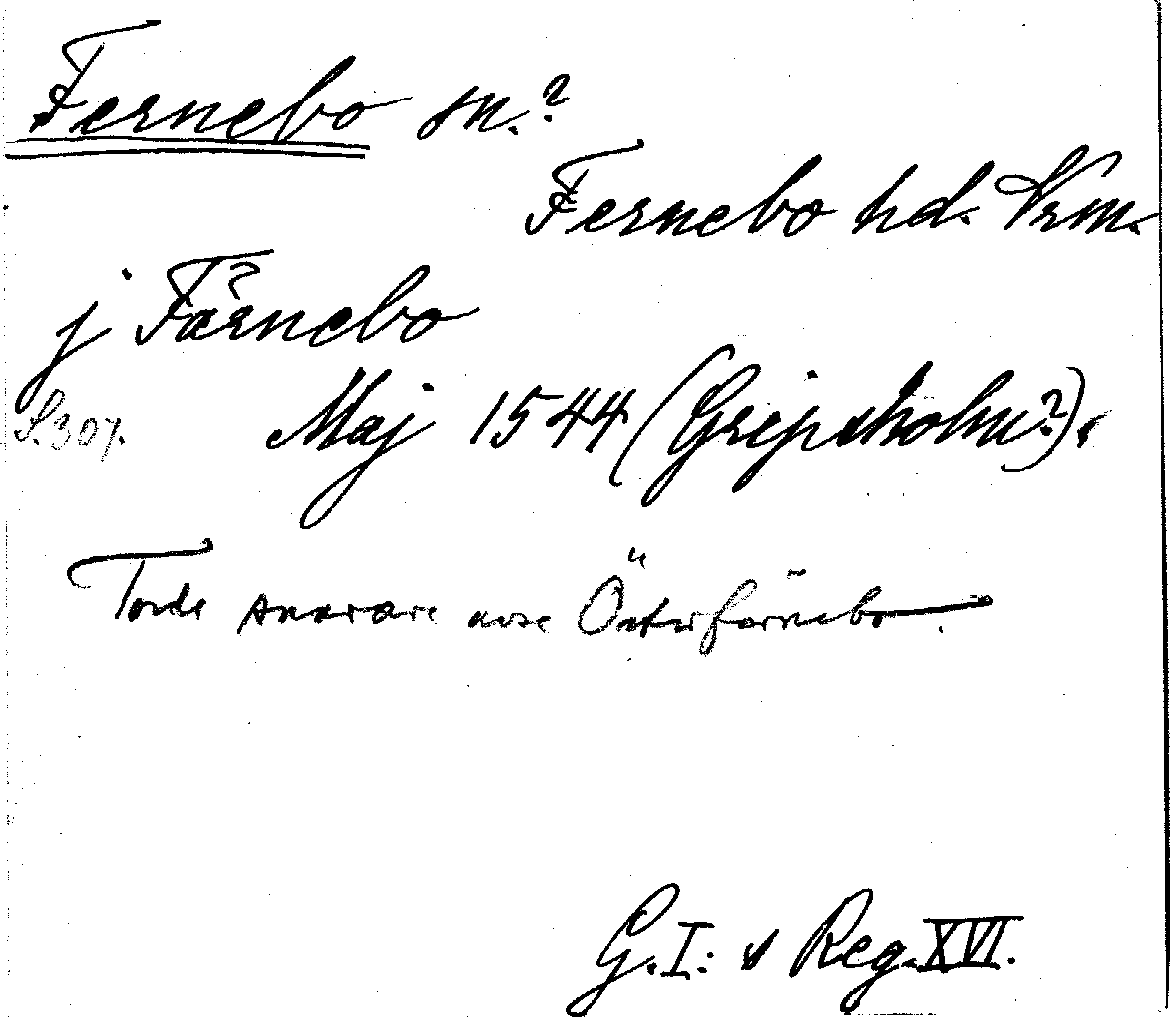 Fernebo sn.?
Fernebo hd. Vrm.
j Färnebo
S. 307. Maj 1544 (Gripsholm?).
Torde snarare avse Österfärnebo.
G. I: s Reg. XVI.